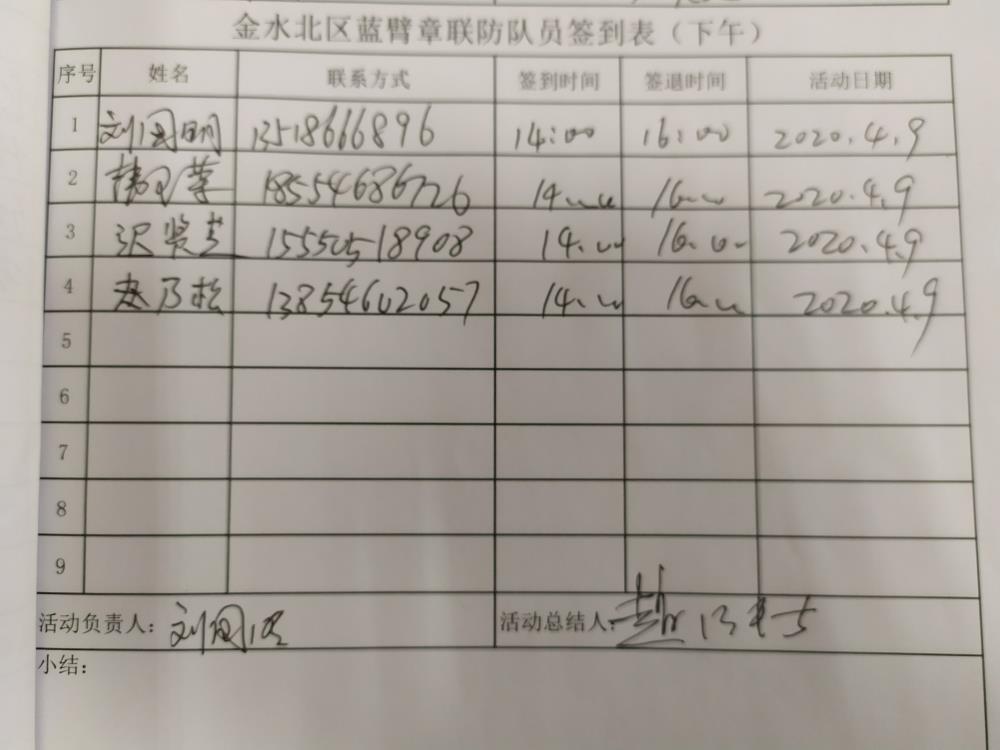 金水北区蓝臂章联防队员签到表（下午）
序号 姓名 联系方式 签到时间 签退时间 活动日期
1 刘国明 13518666896 14:00 16:00 2020.4.9
2 18554686726 14:00 16:00 2020.4.9
3 15550518908 14:00 16:00 2020.4.9
4 赵乃松 13854602057 14:00 16:00 2020.4.9
5
6
7
8
9
活动负责人：刘国 活动总结人：
小结：